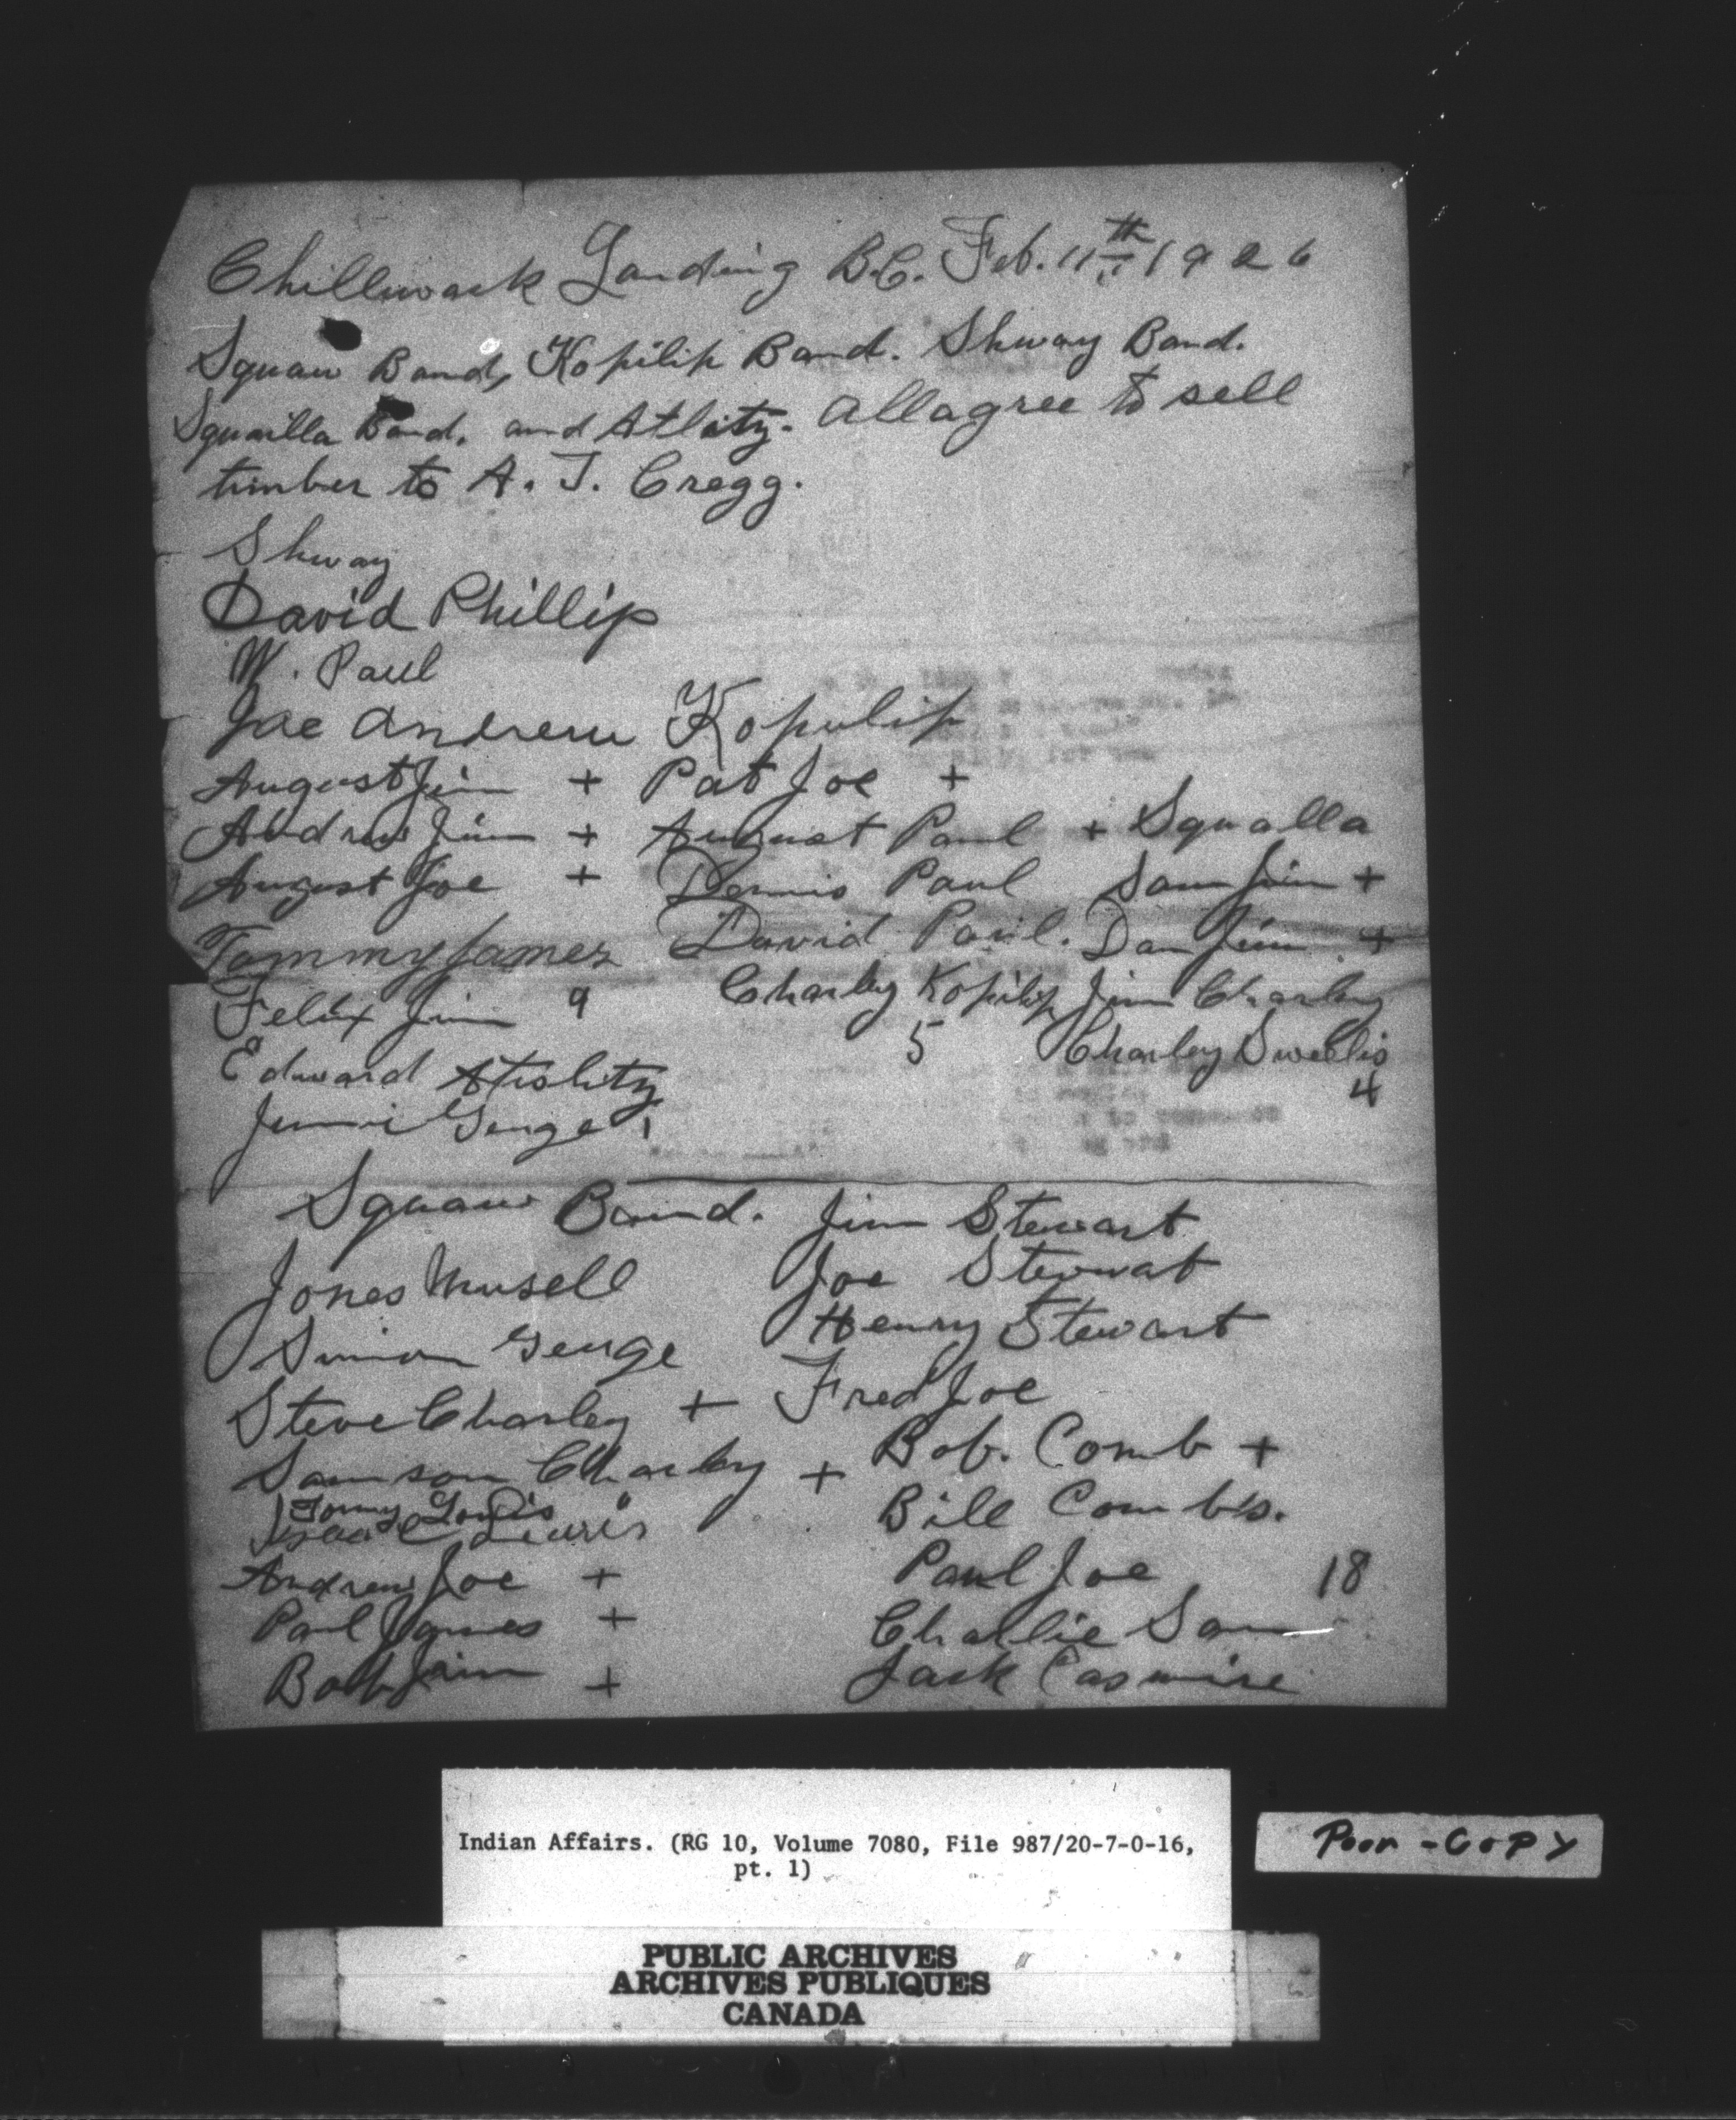 Chilliwack Landing B.C. Feb. 11th 1926
Squaw Band, Kopilip Band. Shway Band.
Squailla Band. and Atlitz. all agree to sell
timber to A. T. Cregg.
Shway
David Phillip
W. Paul
Joe Andrew
August Jim +
Andrew Jim +
August Joe +
Tommy James
Felix Jim 9
Edward
Kopulip
Pat Joe +
August Paul +
Dennis Paul
David Paul.
Charley Kopilip
5
Squalla
Sam Jim +
Dan Jim +
Jim Charley
Charley Sweelis
4
Atislitz
Jimmie George 1
Squaw Band.
Jones Musell
Simion George
Steve Charley +
Samson Charley +
Tommy Louis
Isaac Lewis "
Andrew Joe +
Paul James +
Bob Jim +
Jim Stewart
Joe Stewat
Henry Stewart
Fred Joe
Bob. Comb +
Bill Combs.
Paul Joe 18
Charlie Sam
Jack Casmire
Indian Affairs. (RG 10, Volume 7080, File 987/20-7-0-16,
pt. 1)
Poor - Copy
PUBLIC ARCHIVES
ARCHIVES PUBLIQUES
CANADA